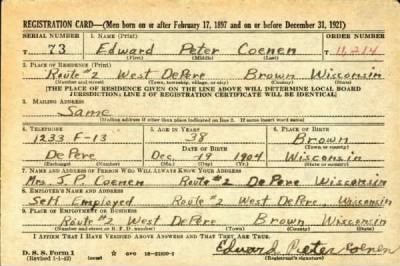 REGISTRATION CARD—(Men born on or after February 17, 1897 and on or before December 31, 1921)
SERIAL NUMBER 1. NAME (Print) ORDER NUMBER
T 73 Edward Peter Coenen 11,214
(First) (Middle) (Last)
2. PLACE OF RESIDENCE (Print)
Route #2 West DePere Brown Wisconsin
(Number and street) (Town, township, village, or city) (County) (State)
[THE PLACE OF RESIDENCE GIVEN ON THE LINE ABOVE WILL DETERMINE LOCAL BOARD
JURISDICTION; LINE 2 OF REGISTRATION CERTIFICATE WILL BE IDENTICAL]
3. MAILING ADDRESS
Same
[Mailing address if other than place indicated on line 2. If same insert word same]
4. TELEPHONE 5. AGE IN YEARS 6. PLACE OF BIRTH
1233 F-13 38 Brown
DATE OF BIRTH (Town or county)
De Pere Dec. 19 1904 Wisconsin
(Exchange) (Number) (Mo.) (Day) (Yr.) (State or country)
7. NAME AND ADDRESS OF PERSON WHO WILL ALWAYS KNOW YOUR ADDRESS
Mrs. J. P. Coenen Route #2 De Pere Wisconsin
8. EMPLOYER'S NAME AND ADDRESS
Self Employed Route #2 West DePere, Wisconsin
9. PLACE OF EMPLOYMENT OR BUSINESS
Route #2 West DePere Brown Wisconsin
(Number and street or R. F. D. number) (Town) (County) (State)
I AFFIRM THAT I HAVE VERIFIED ABOVE ANSWERS AND THAT THEY ARE TRUE.
D. S. S. Form 1
(Revised 1-1-42) (over) GPO Edward Peter Coenen
(Registrant's signature)